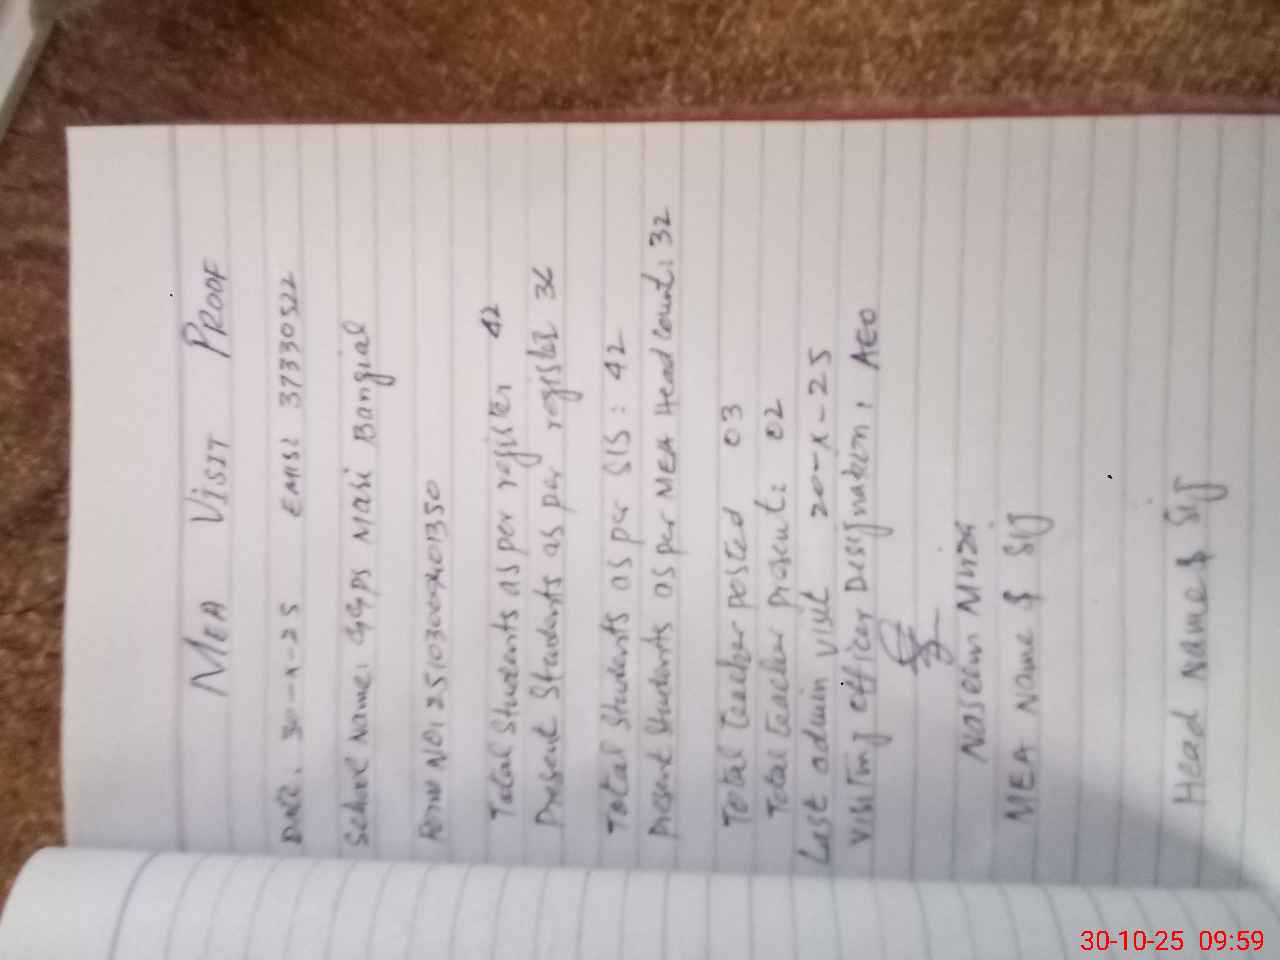 MEA VISIT PROOF
Date. 30-X-25 EMIS: 37330522
School Name: GGPS Mari Bangial
Form NO:
Total Students as per register 42
Present Students as per register 36
Total Students as per SIS: 42
Present Students as per MEA Head Count: 32
Total Teacher posted 03
Total teacher present: 02
Last admin visit 20-X-25
Visiting officer Designation: AEO
Naseem
MEA Name & Sig
Head Name & Sig
30-10-25 09:59